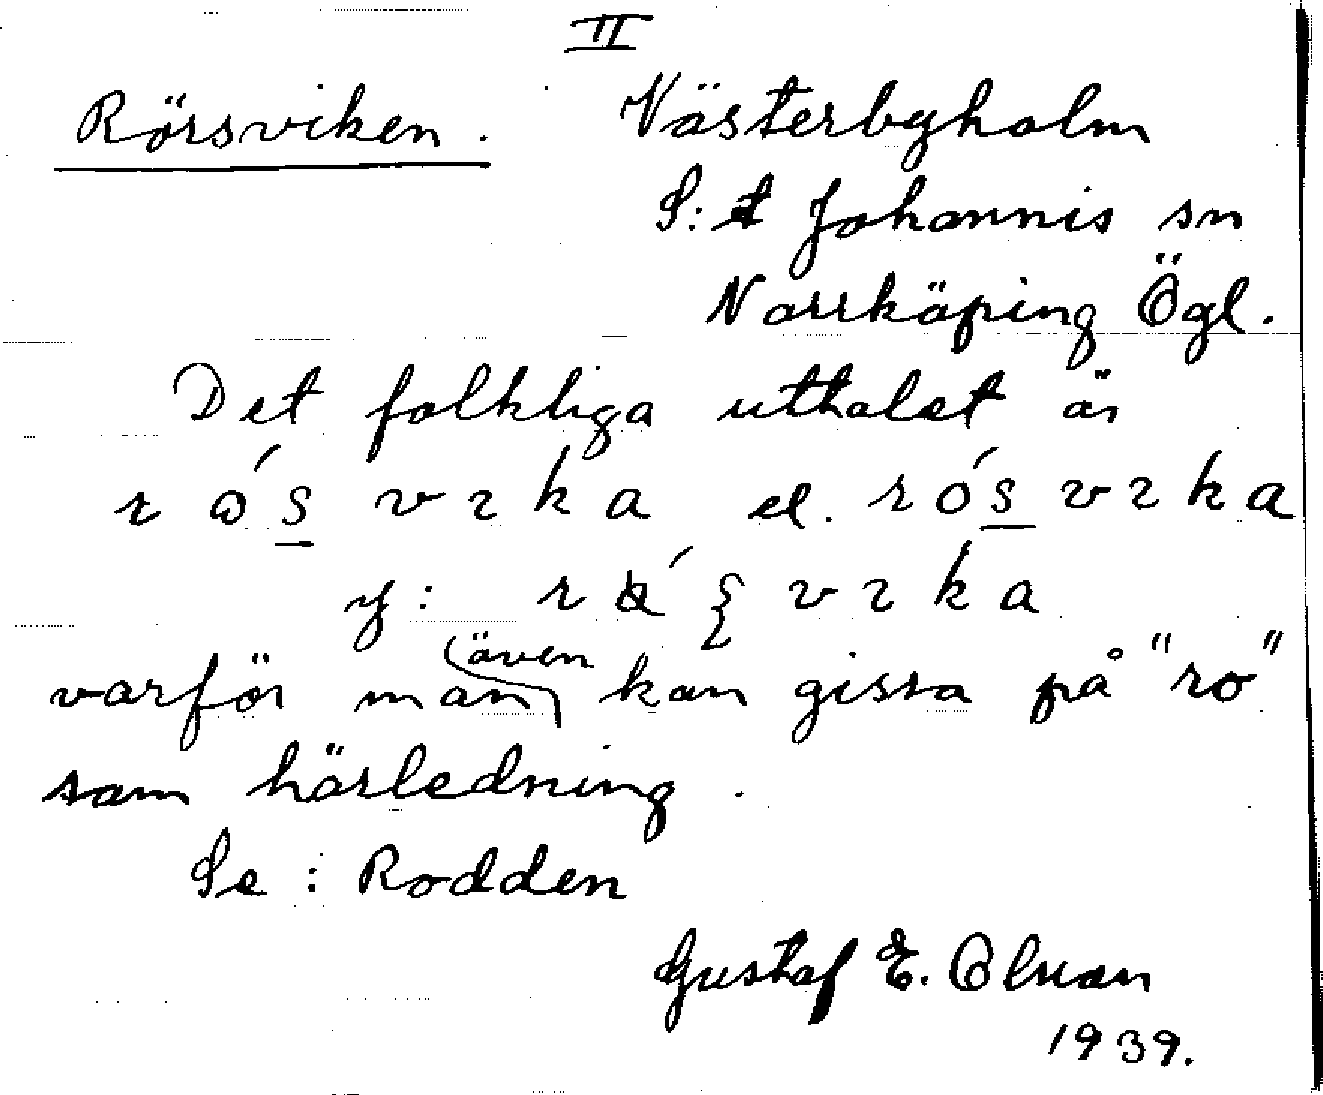 II
Rörsviken. Västerbyholm
S:t Johannis sn
Norrköping Ögl.
Det folkliga uttalet är
el.
varför man även kan gissa på "ro"
som härledning.
Se: Rodden
Gustaf E. Olsson
1939.